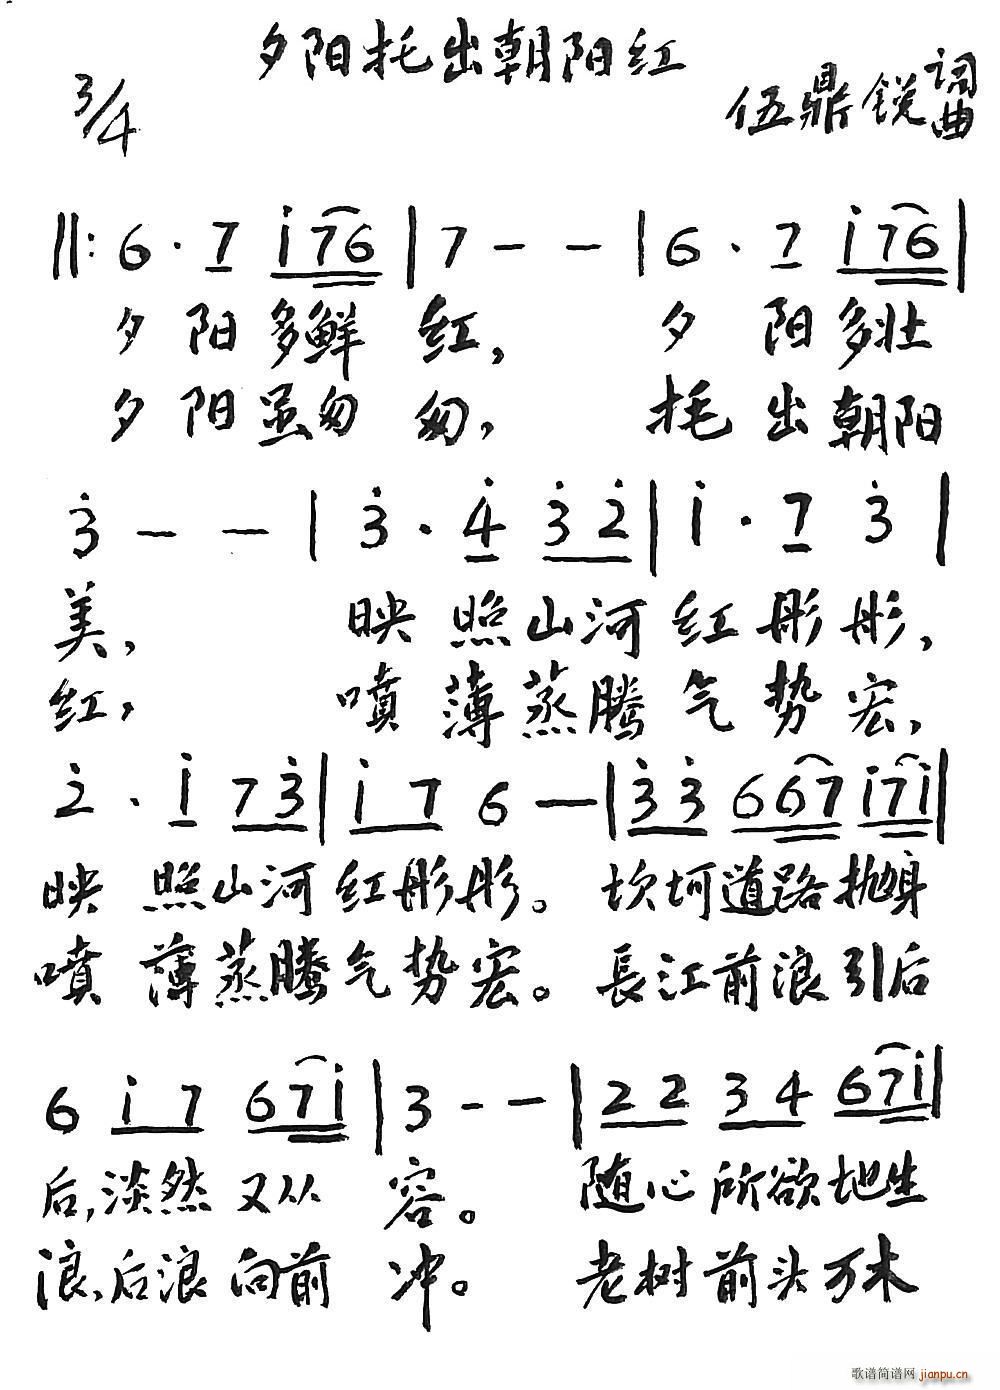 夕阳托出朝阳红
3/4
伍鼎锐 词曲
‖: 6 · 7 i 7 6 | 7 - - | 6 · 7 i 7 6 |
夕阳多鲜红, 夕阳多壮
夕阳虽匆匆, 托出朝阳
3̇ - - | 3̇ · 4̇ 3̇ 2̇ | i · 7 3̇ |
美, 映照山河红彤彤,
红, 喷薄蒸腾气势宏,
2̇ · i 7 3̇ | i 7 6 - | 3̇ 3̇ 6 6 7 i 7 i |
映照山河红彤彤。坎坷道路抛身
喷薄蒸腾气势宏。長江前浪引后
6 i 7 6 7 i | 3 - - | 2 2 3 4 6 7 i |
后,淡然又从容。随心所欲地生
浪、后浪向前冲。老树前头万木
歌谱简谱网 jianpu.cn